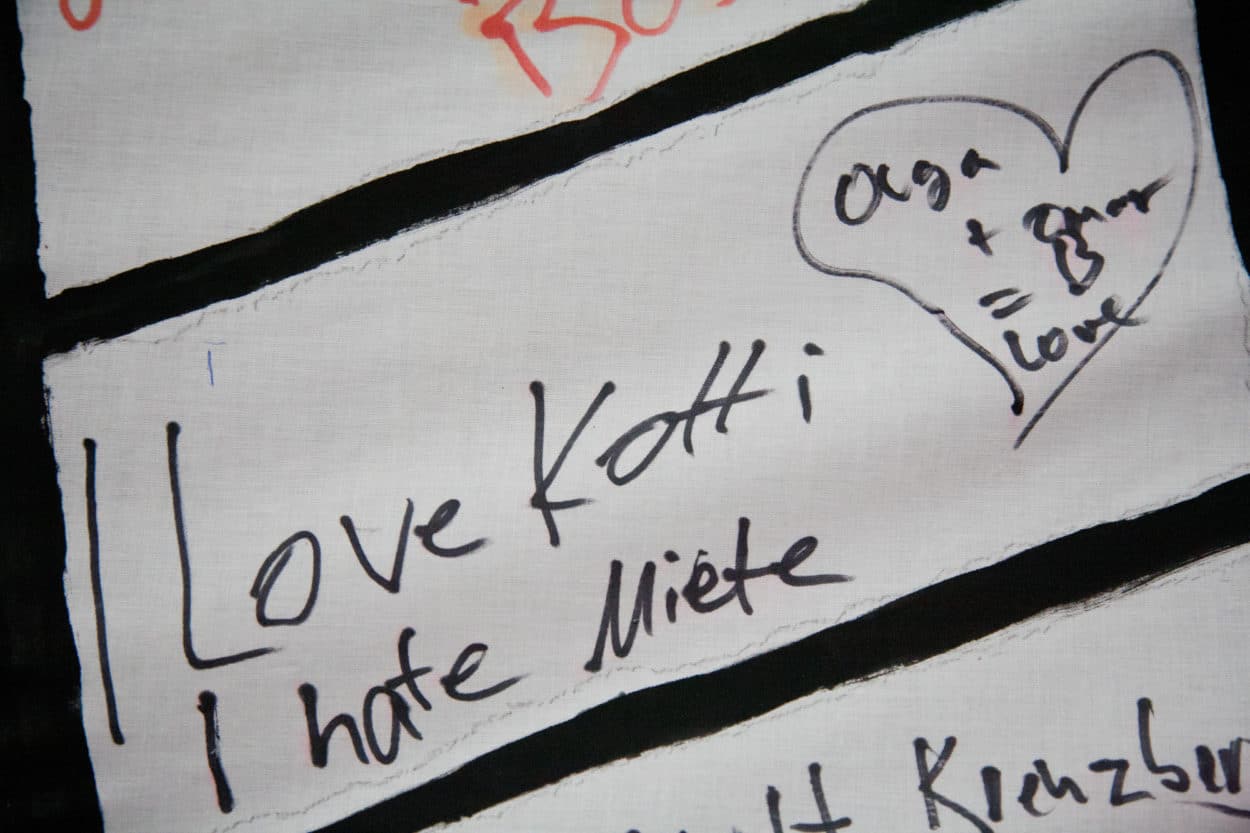 Olga
+ Omar
= Love
I Love Kotti
I hate Miete
Kreuzber